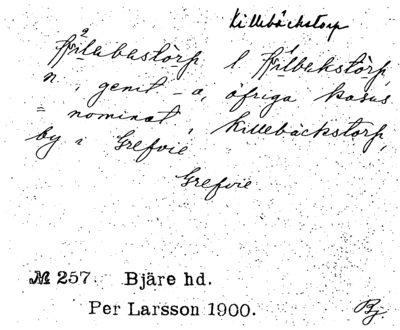 Killebäckstorp
l
n., genit -a, öfriga kasus
= nominat, Killebäckstorp,
by i Grefvie
Grefvie
№ 257. Bjäre hd.
Per Larsson 1900.
Bj.